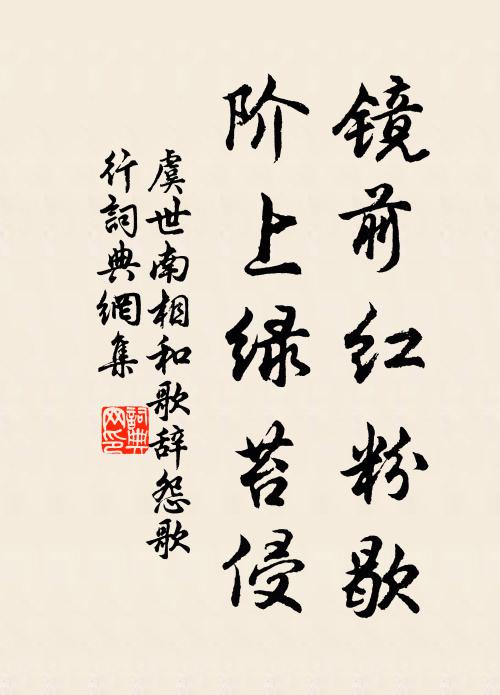 镜前红粉歇
阶上绿苔侵
虞世南相和歌辞怨歌
行詞典網集
詞典
网印